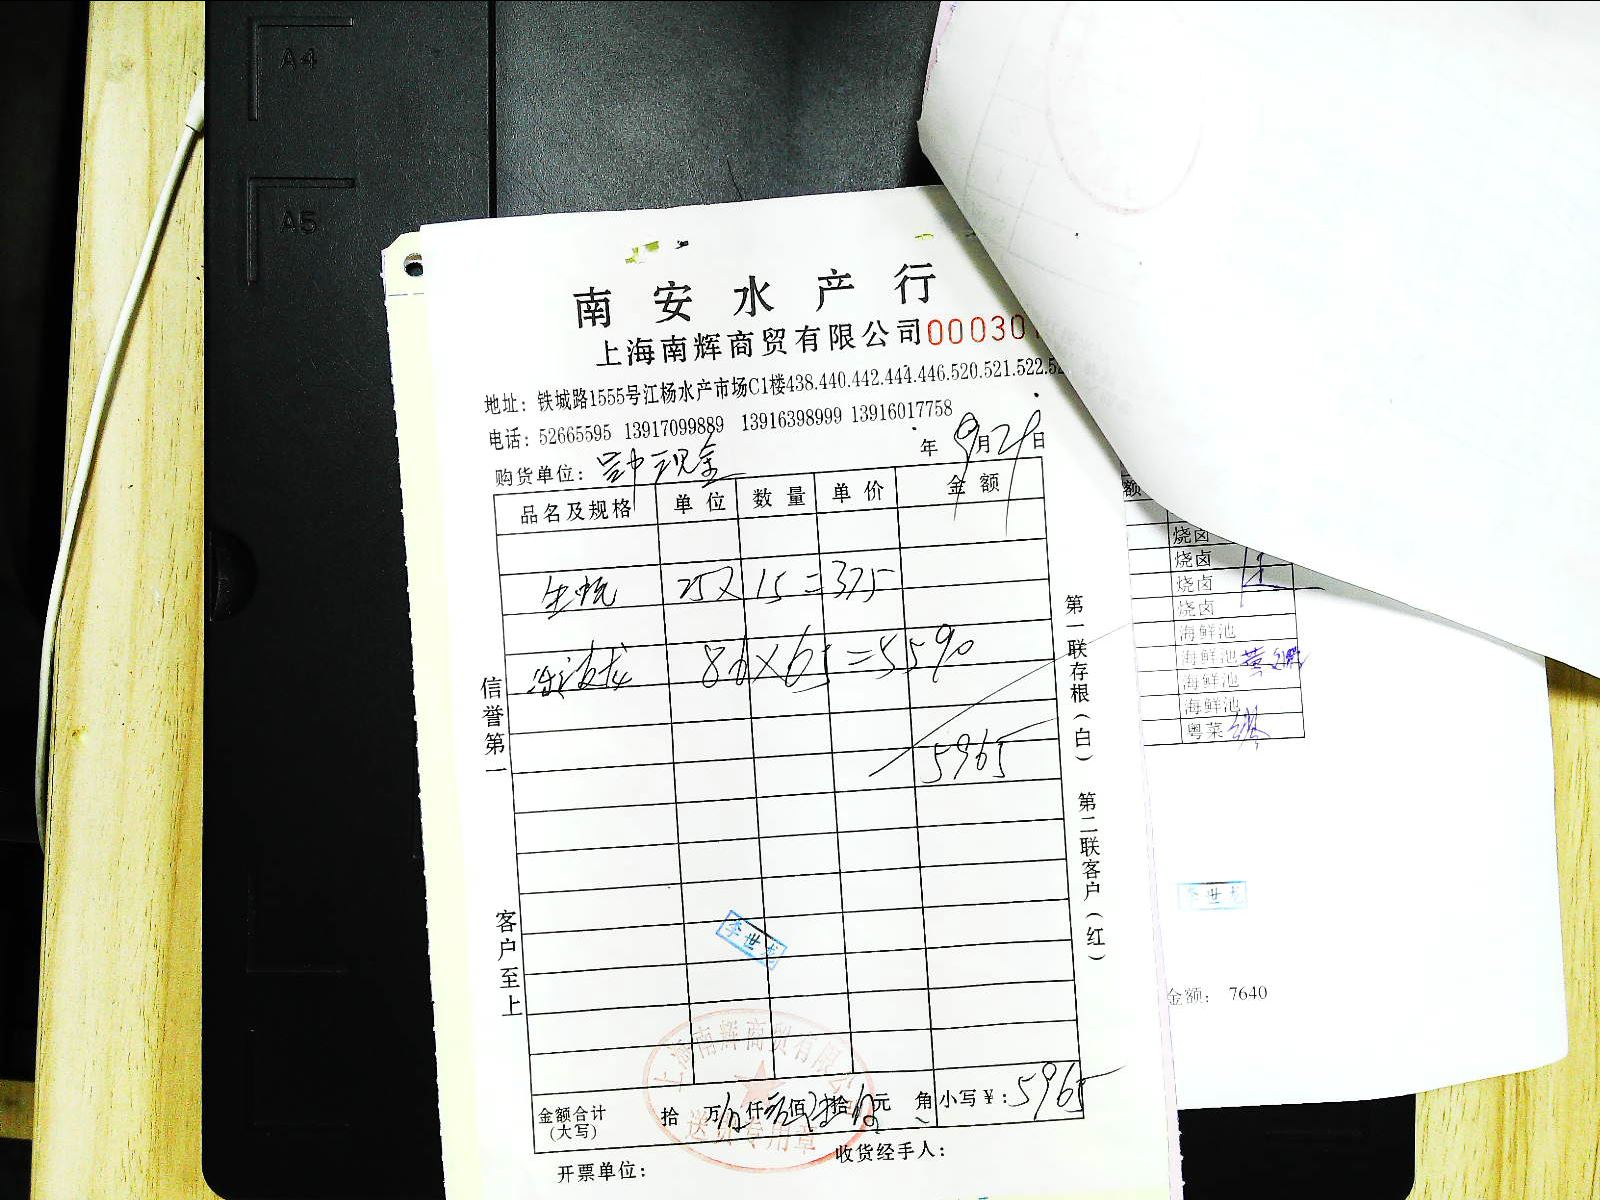 A4
A5
南安水产行
上海南辉商贸有限公司 00030
地址：铁城路1555号江杨水产市场C1楼438.440.442.444.446.520.521.522.52
电话：52665595 13917099889 13916398999 13916017758
年 9月29日
购货单位：吴中现金
品名及规格 单位 数量 单价 金额
生蚝 25×15=375
86×65=5590
5965
信誉第一
客户至上
第一联存根（白）
第二联客户（红）
李世龙
上海南辉商贸有限公司
送货专用章
金额合计（大写） 拾 万伍仟玖佰陆拾伍元 角 小写￥：5965
开票单位：
收货经手人：
额
烧卤
烧卤
烧卤
烧卤
海鲜池
海鲜池
海鲜池
海鲜池
粤菜
李世龙
金额： 7640